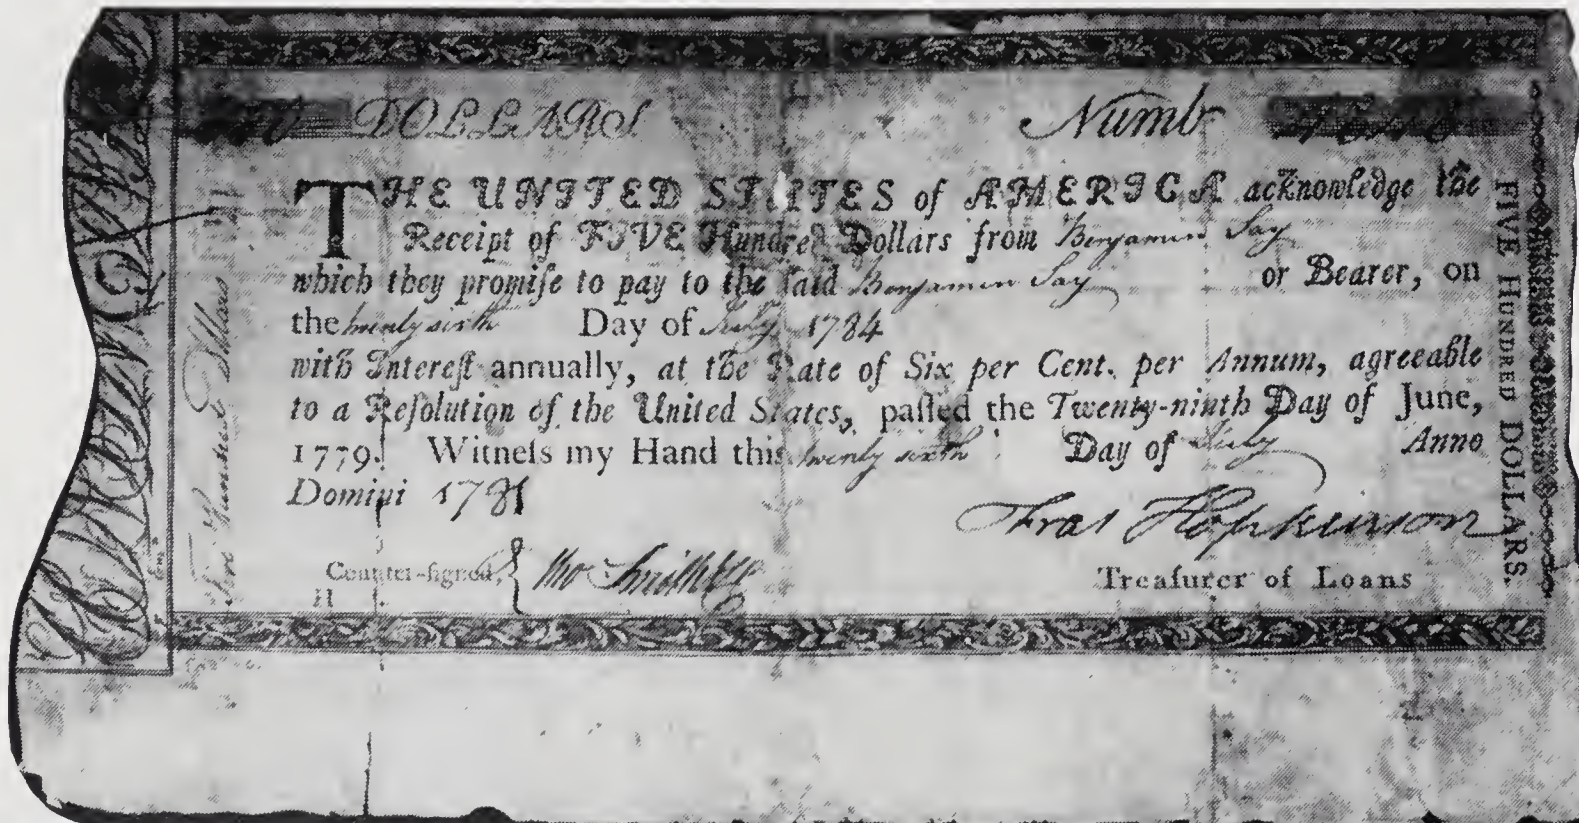 DOLLARS Numb
THE UNITED STATES of AMERICA acknowledge the
Receipt of FIVE Hundred Dollars from Benjamin Say
which they promiſe to pay to the ſaid Benjamin Say or Bearer, on
the twenty sixth Day of July 1784
with Intereſt annually, at the Rate of Six per Cent. per Annum, agreeable
to a Reſolution of the United States, paſſed the Twenty-ninth Day of June,
1779. Witneſs my Hand this twenty sixth Day of July Anno
Domini 1781
Fras Hopkinson
Counter-ſigned, Tho Smith
H
Treaſurer of Loans
FIVE HUNDRED DOLLARS.
Five Hundred Dollars